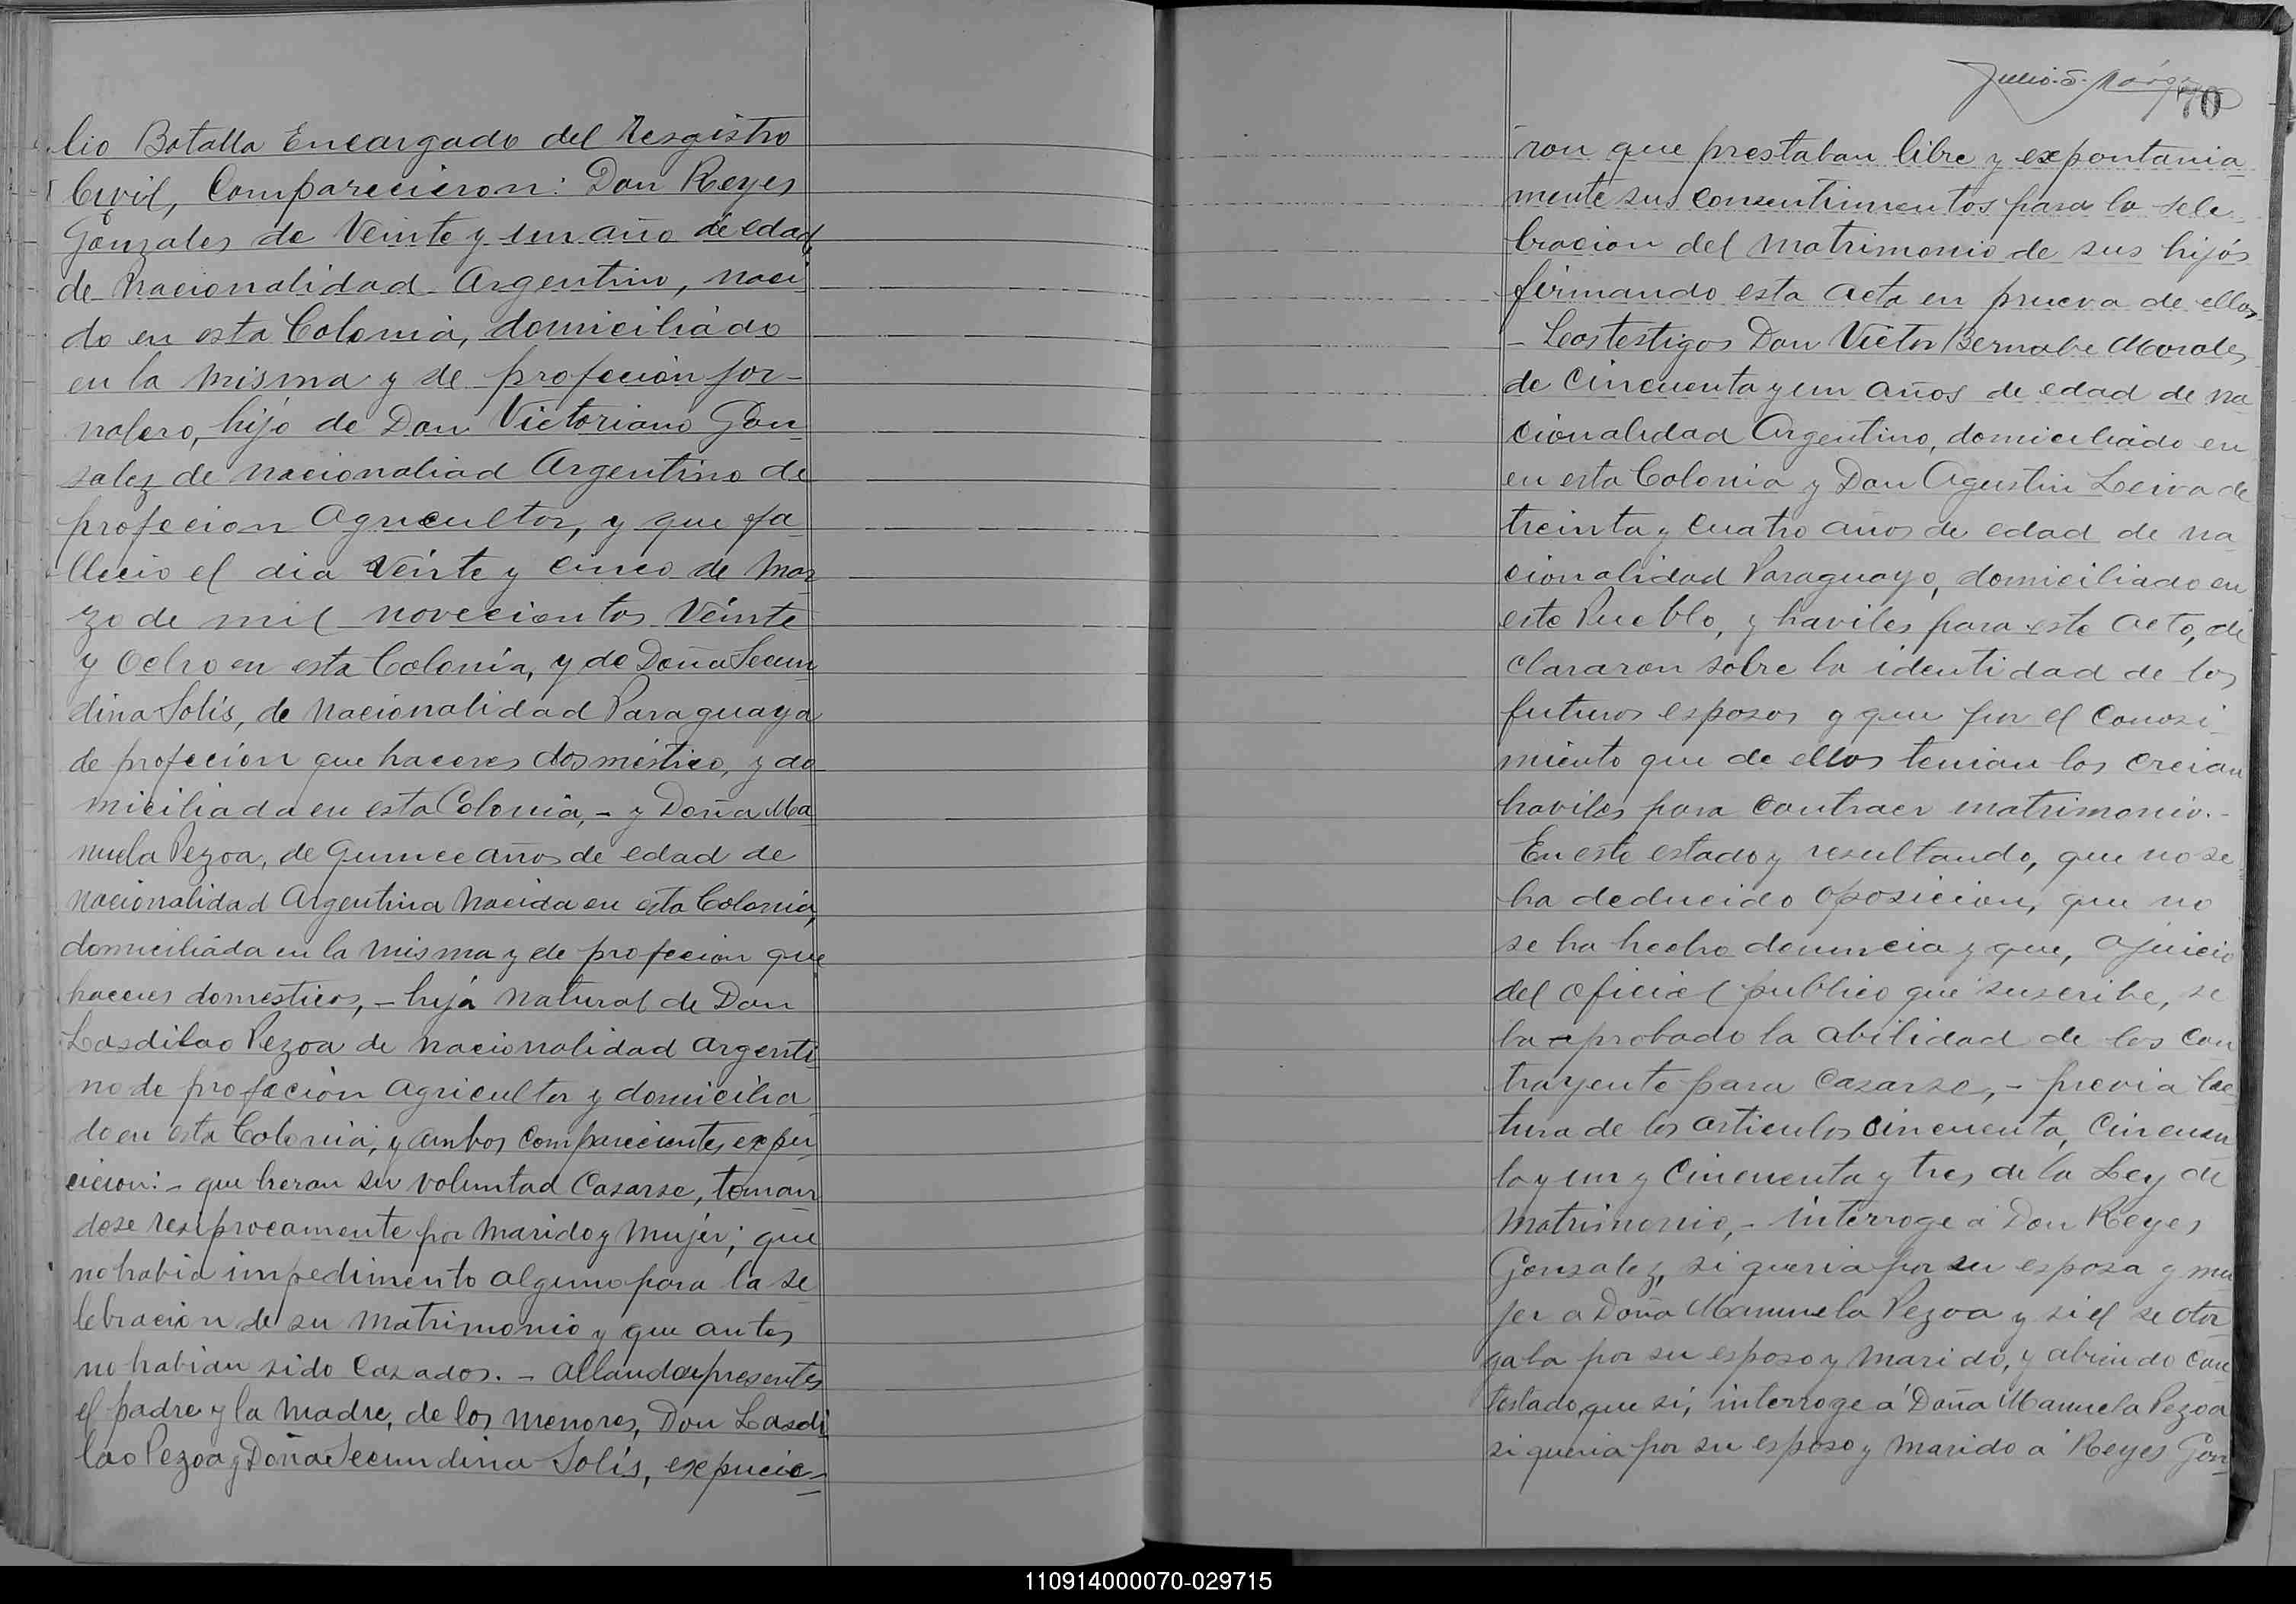 lio Batalla Encargado del Resgistro
Civil, Comparecieron: Don Reyes
Gonzales de Veinte y un año de edad,
de Nacionalidad Argentino, naci
do en esta Colonia, domiciliado
en la misma y de profecion jor-
nalero, hijo de Don Victoriano Gon
salez de nacionaliad Argentino de
profecion Agricultor, y que fa
llecio el dia Veinte y cinco de Mar
zo de mil novecientos Veinte
y Ocho en esta Colonia, y de Doña Secun
dina Solis, de Nacionalidad Paraguaya
de profecion que haceres dosmestico, y do
miciliada en esta Colonia,- y Doña Ma
nuela Pezoa, de quince años de edad de
nacionalidad Argentina Nacida en esta Colonia,
domiciliada en la misma y de profecion que
haceres domesticos,- hija natural de Don
Lasdilao Pezoa de nacionalidad argenti
no de profecion agricultor y domicilia
do en esta Colonia, y ambos Comparecientes expu
cieron:- que heran su voluntad Casarse, toman
dose resiprocamente por Marido y Mujer; que
no habia impedimento alguno para la se
lebracion de su Matrimonio y que antes
no habian sido Casados.- allandose presentes
el padre y la Madre, de los menores, Don Lasdi
lao Pezoa y Doña Secundina Solis, expucie-
Julio S.
70
ron que prestaban libre y expontania
mente sus consentimentos para la sele
bracion del Matrimonio de sus hijos
firmando esta acta en prueva de ellos,
- Los testigos Don Victor Bernabe Morales
de Cincuenta y un Años de edad de na
cionalidad Argentino, domiciliado en
en esta Colonia y Don Agustin Leiva de
treinta y cuatro años de edad de na
cionalidad Paraguayo, domiciliado en
este Pueblo, y haviles para este acto, de
clararon sobre la identidad de los
futuros esposos y que por el Conosi
miento que de ellos tenian los creian
haviles para contraer matrimonio.-
En este estado y resultando, que no se
ha deducido oposicion, que no
se ha hecho denuncia y que, a juicio
del oficial publico que suscribe, se
ha aprobado la abilidad de los Con
trayente para casarse,- previa lec
tura de los articulos cincuenta, Cincuen
ta y un y Cincuenta y tres de la Ley de
Matrimonio,- interroge a Don Reyes
Gonsalez, si queria por su esposa y mu
jer a Doña Manuela Pezoa y si el se otor
gaba por su esposo y marido, y abiendo con
testado, que si, interroge a Doña Manuela Pezoa
si queria por su esposo y marido a Reyes Gon
110914000070-029715